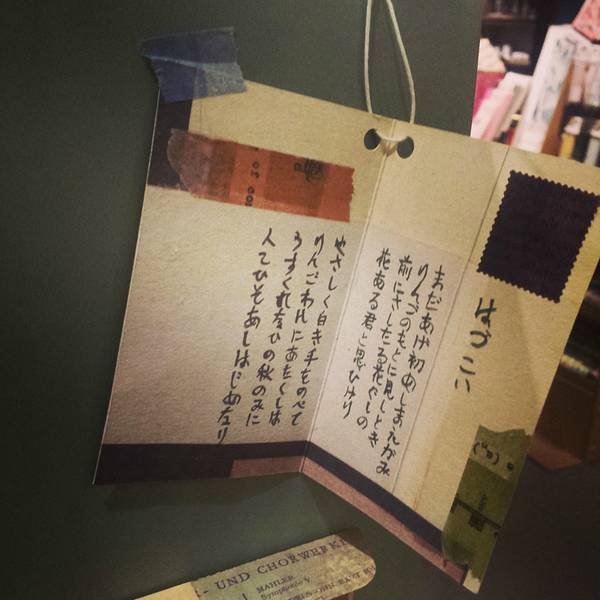 はつこい
まだあげ初めしまえがみ
りんごのもとに見しとき
前にさしたる花ぐしの
花ある君と思ひけり
やさしく白き手をのべて
りんごわれにあたへしは
うすくれなひの秋のみに
人こひそめしはじめなり
UND CHORWERKE
MAHLER
Symphonie